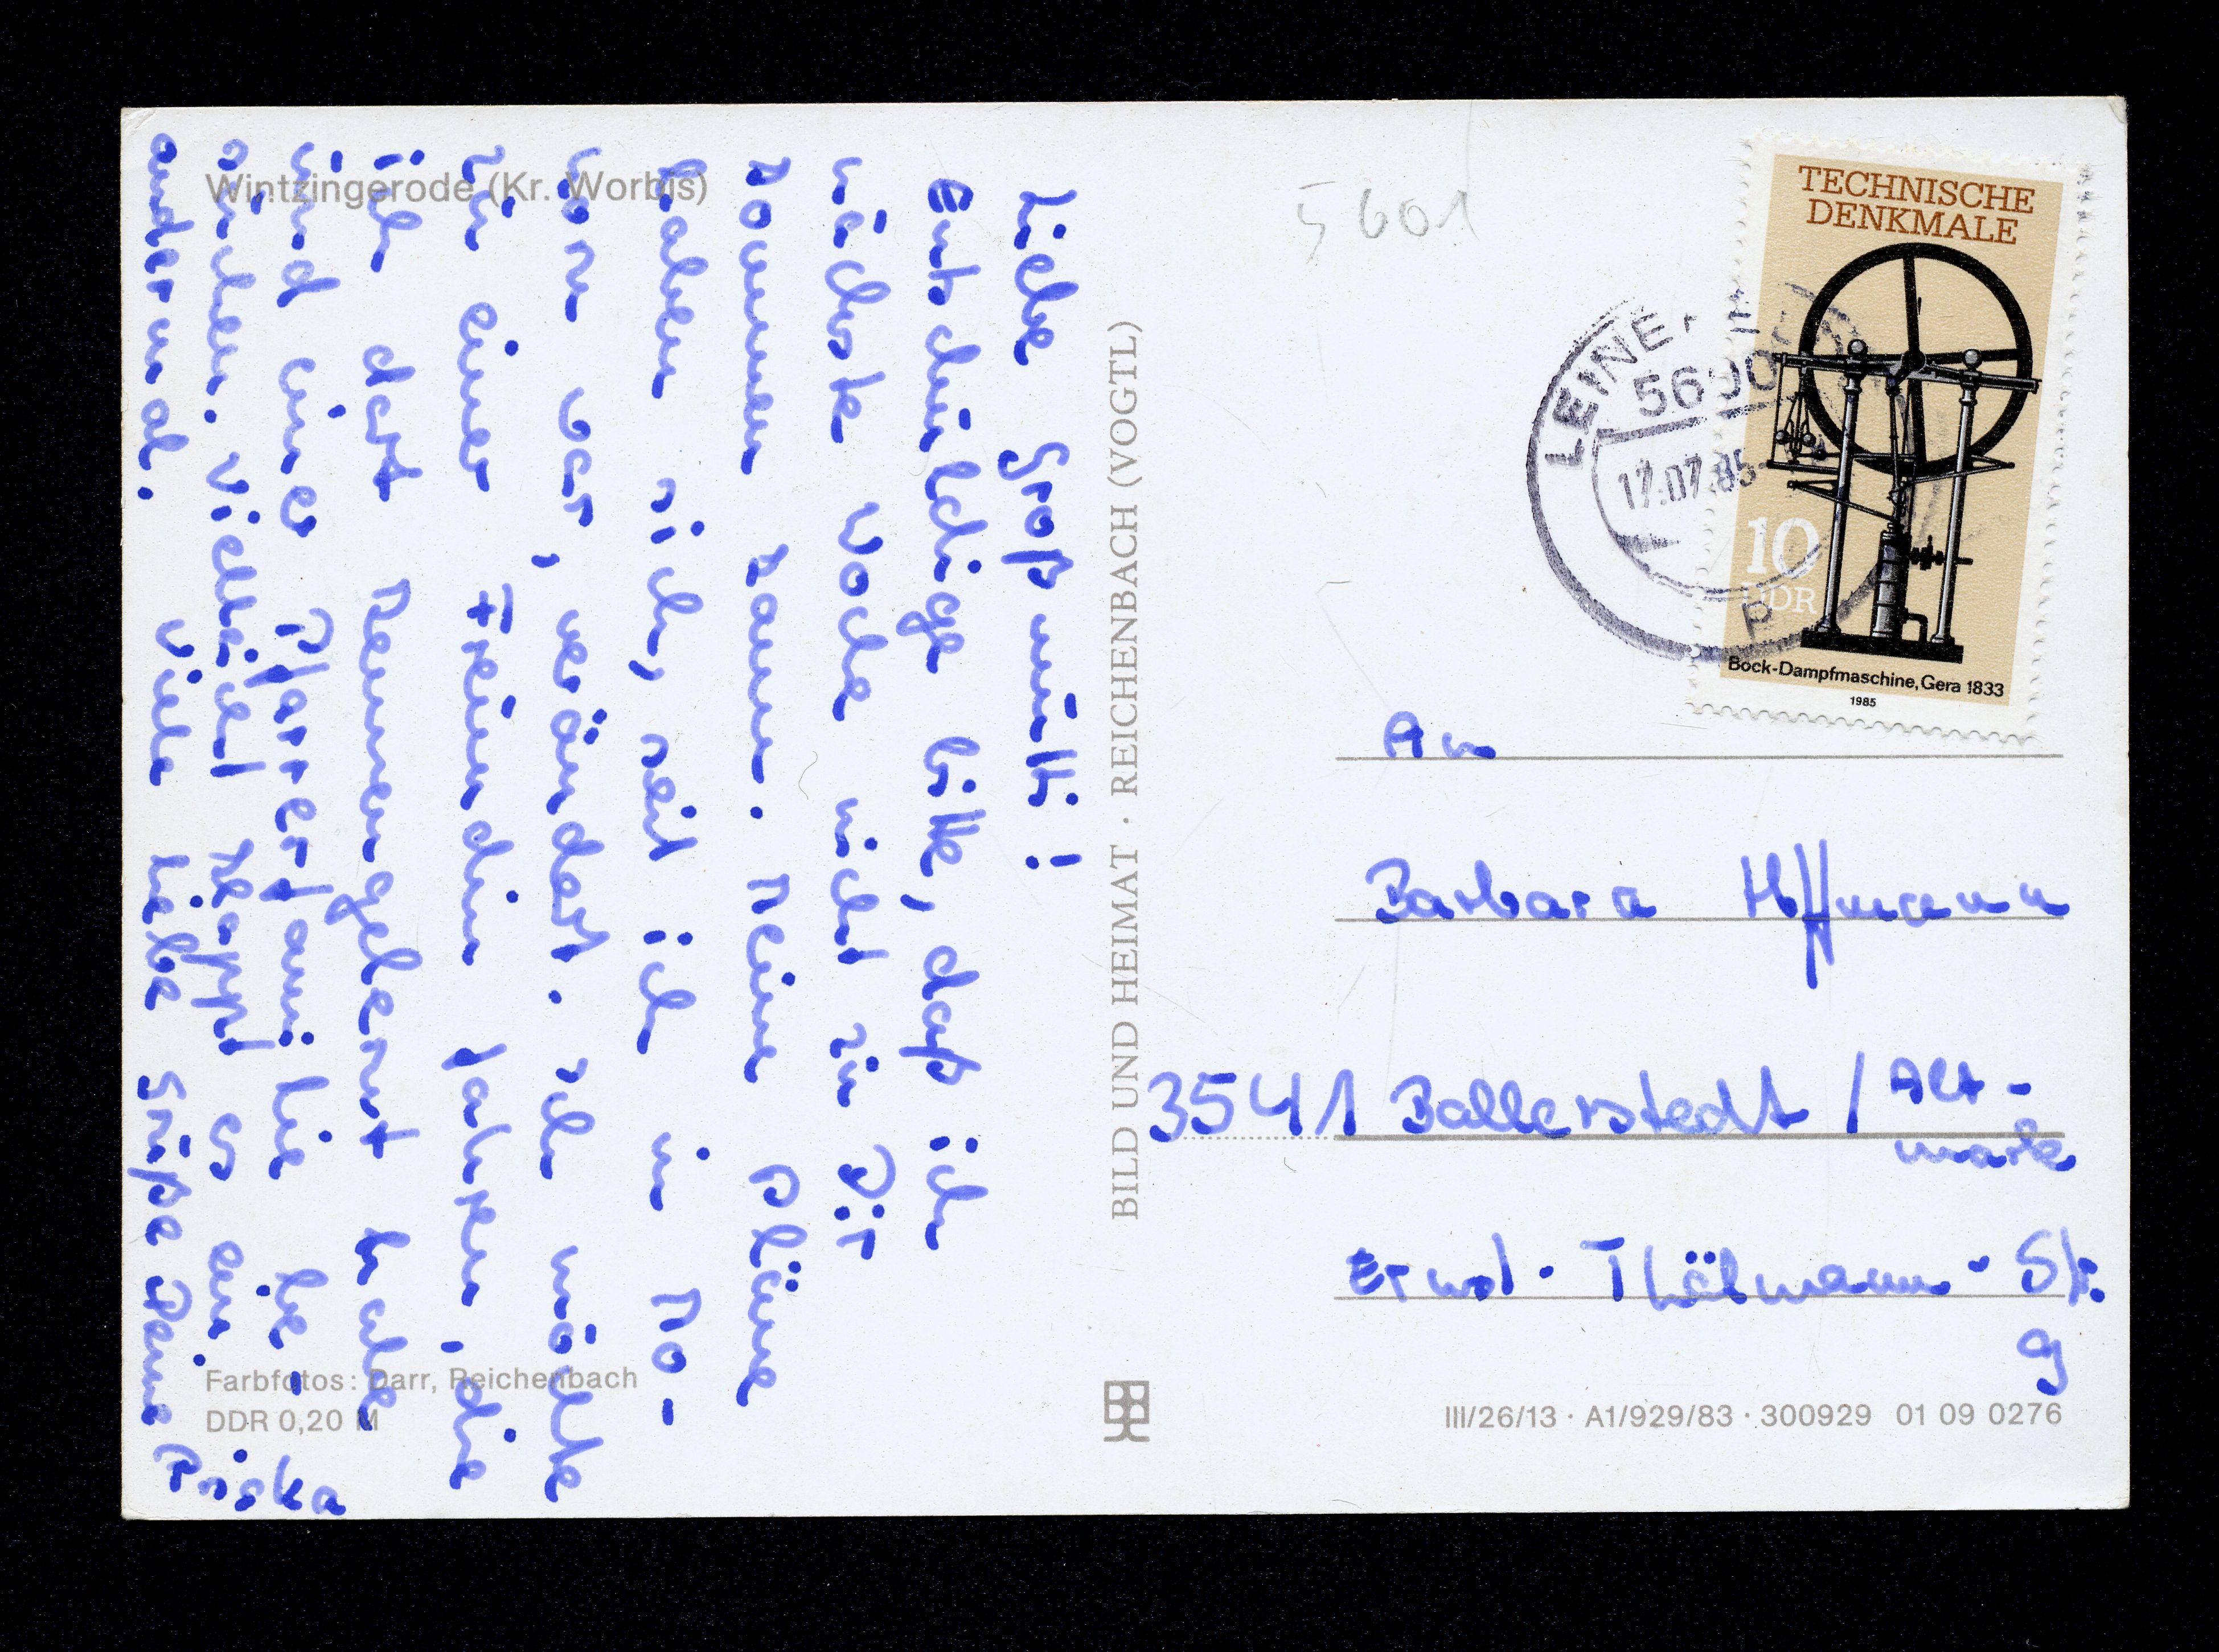 Wintzingerode (Kr. Worbis)
Liebe Großmutti!
Entschuldige bitte, daß ich
nächste Woche nicht zu Dir
kommen kann. Meine Pläne
haben sich, seit ich in No-
ra war, verändert. Ich möchte
zu einer Freundin fahren, die
ich dort kennengelernt habe
und eine Pfarrerfamilie be-
suchen. Vielleicht klappt es ein
andermal. Viele liebe Grüße Deine
Priska
Farbfotos: Darr, Reichenbach
DDR 0,20 M
BILD UND HEIMAT · REICHENBACH (VOGTL)
5601
TECHNISCHE
DENKMALE
10
DDR
Bock-Dampfmaschine, Gera 1833
1985
LEINE
5600
17.07.85
An
Barbara Hoffmann
3541 Ballerstedt / Alt-
mark
Ernst-Thälmann-Str.
9
III/26/13 · A1/929/83 · 300929 01 09 0276